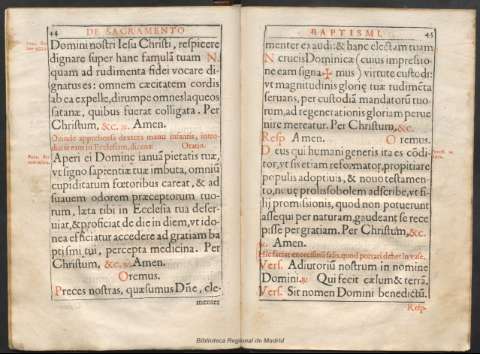 44 DE SACRAMENTO
Domini nostri Iesu Christi, respicere
dignare super hanc famulã tuam N.
quam ad rudimenta fidei vocare di-
gnatus es: omnem cæcitatem cordis
ab ea expelle, dirumpe omnes laqueos
satanæ, quibus fuerat colligata. Per
Christum, &c. ℟. Amen.
Deinde apprehensa dextera manu infantis, intro-
ducit eum in Ecclesiam, dicens: Oratio.
Aperi ei Domine ianuã pietatis tuæ,
vt signo sapientiæ tuæ imbuta, omniũ
cupiditatum fœtoribus careat, & ad
suauem odorem præceptorum tuo-
rum, læta tibi in Ecclesia tua deser-
uiat, & proficiat de die in diem, vt ido-
nea efficiatur accedere ad gratiam ba
ptismi tui, percepta medicina. Per
Christum, &c. ℟. Amen.
Oremus.
Preces nostras, quæsumus Dñe, cle-
menter
BAPTISMI. 45
menter exaudi: & hanc electam tuam
N crucis Dominicæ (cuius impresio-
ne eam signa✠mus) virtute custodi:
vt magnitudinis glorię tuæ rudimẽta
seruans, per custodiã mandatorũ tuo-
rum, ad regenerationis gloriam perue
nire mereatur. Per Christum, &c.
Resp. Amen. Oremus.
Deus qui humani generis ita es cõdi-
tor, vt sis etiam reformator, propitiare
populis adoptiuis, & nouo testamen-
to, nouę prolis sobolem adscribe, vt fi-
lij promissionis, quod non potuerunt
assequi per naturam, gaudeant se rece
pisse per gratiam. Per Christum, &c.
℟. Amen.
Vers. Adiutoriũ nostrum in nomine
Domini. ℟. Qui fecit cælum & terrã.
Vers. Sit nomen Domini benedictũ.
Resp.
Biblioteca Regional de Madrid